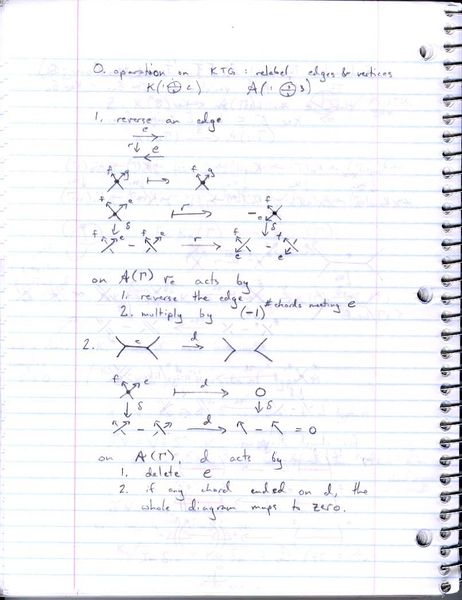 0. operation on KTG : relabel edges & vertices
K(1 2) A(1 3)
1. reverse an edge
e
r↓ e
f g ↦ f g
f e ↦ r - e f
↓δ ↓δ
f e - f e → r f e - f e
on A(Γ) re acts by
1. reverse the edge
2. multiply by (-1)^# chords meeting e
2. e → d
f e ↦ d 0
↓δ ↓δ
- → d - = 0
on A(Γ), d acts by
1. delete e
2. if any chord ended on d, the
whole diagram maps to zero.